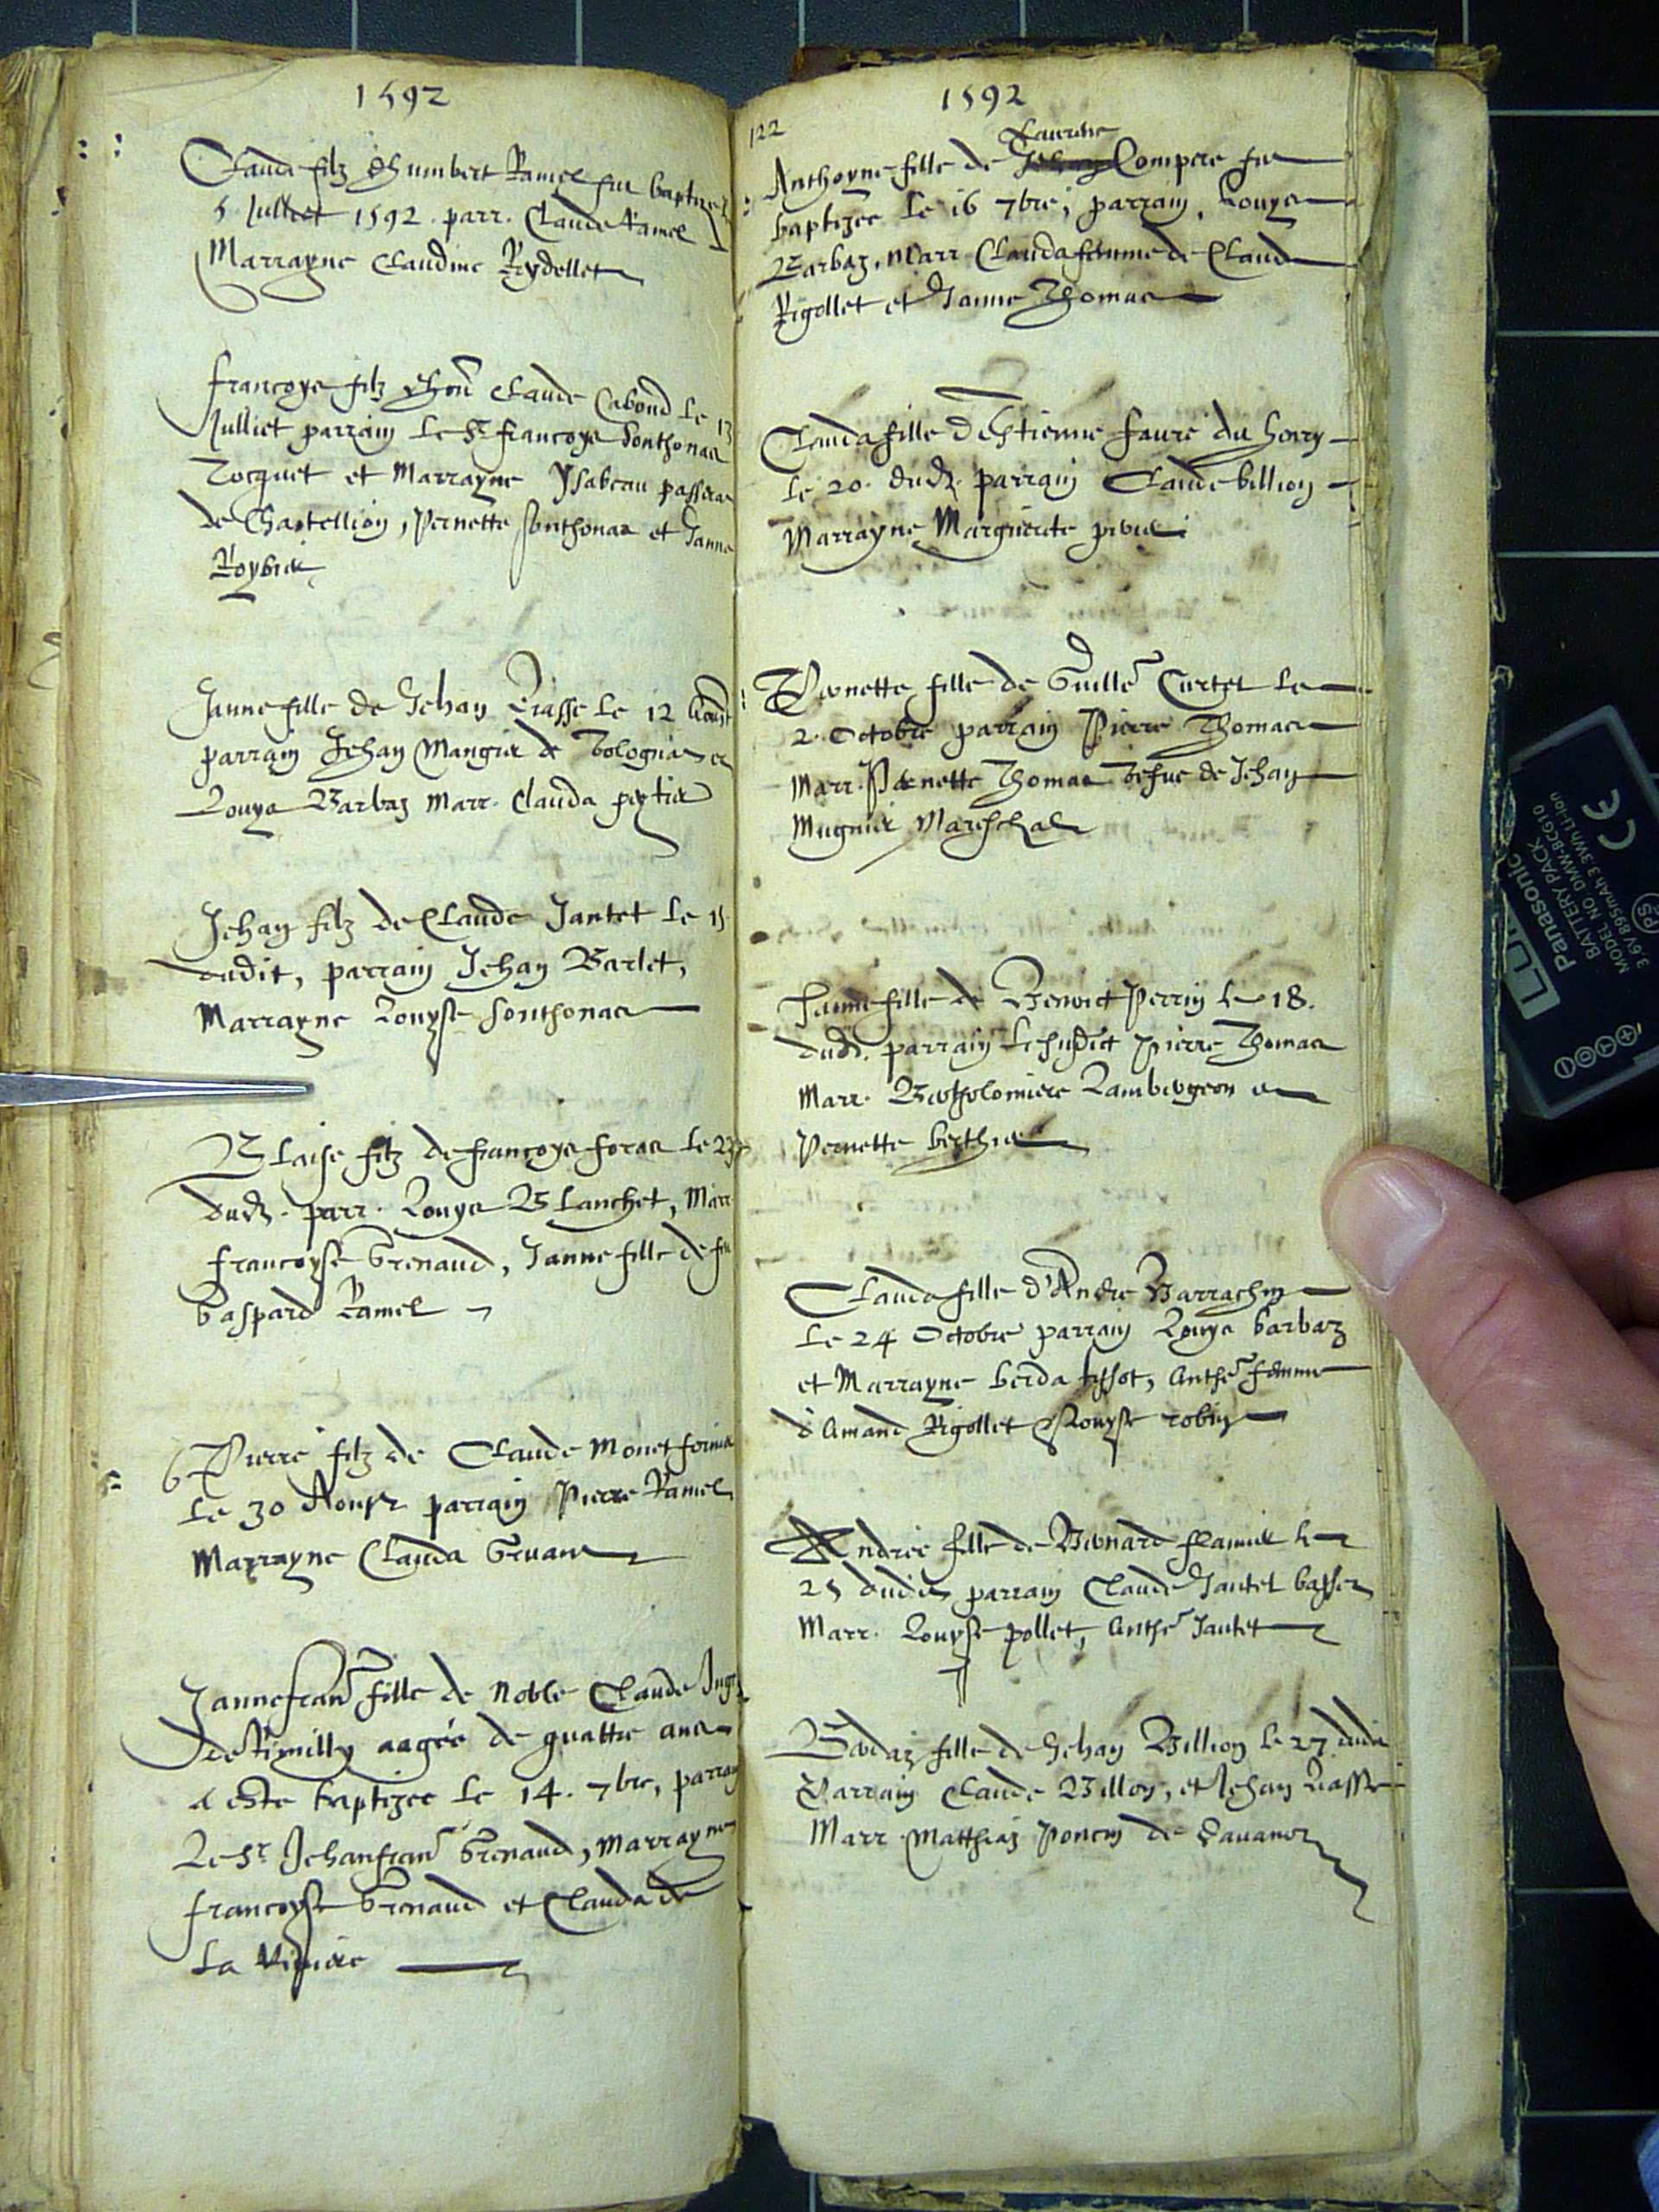 1592
Claude filz d'humbert Ramel fut baptize
5 Julliet 1592. parr. Claude Ramel
Marrayne Claudine Rydellet
Francoys filz Claude Cabond Le 13
Julliet parrain Le Sr francoys Sonthonas
Tocquet et Marrayne Ysabeau
de Chastellion, Pernette Sonthonas et Janne
Roybier
Janne fille de Jehan Riasse Le 12 Aoust
parrain Jehan Mangier de Bolognia et
Louys Barbaz Marr. Clauda
Jehan filz de Claude Jantet Le 15
dudit, parrain Jehan Barlet,
Marrayne Louyse Sonthonas
Blaise filz de francoys foras Le 23
dud. parr. Louys Blanchet, Marr
francoyse Grenaud, Janne fille de fu
Gaspard Ramel
Pierre filz de Claude Monet
Le 30 Aoust parrain Pierre Ramel
Marrayne Clauda
Jannefran fille de Noble Claude
de Rimilly aagée de quattre ans
a este baptizee Le 14. 7bre, parrain
Le Sr Jehanfran Grenaud, Marrayne
francoyse Grenaud et Clauda de
La
122
1592
Laurent
Anthoyne fille de Compere fut
baptizee Le 16 7bre, parrain, Louys
Barbaz, Marr Clauda femme de Claude
Rigollet et Janne Thomas
Clauda fille d'Estienne faure du
Le 20. dud. parrain Claude billion
Marrayne Marguerite
Pernette fille de Guille Curtet Le
2. Octobre parrain Pierre Thomas
Marr. Pernette Thomas vefue de Jehan
Mugnier Mareschal
Janne fille de Benoict Perrin Le 18.
dud. parrain Lesusdict Pierre Thomas
Marr. Bartholomiere et
Pernette berthier
Clauda fille d'Andre Barrachin
Le 24 Octobre parrain Louys barbaz
et Marrayne berda tissot, Anthe femme
d'Amand Rigollet Louyse robin
Andree fille de Bernard flamier Le
25 dudit parrain Claude Jantet
Marr. Louyse pollet, Anthe Jantet
fille de Jehan Billion Le 27 dudit
Parrain Claude Billon, et Jehan Riasse
Marr. Matthiaz Poncin de
LUMIX
Panasonic
BATTERY PACK
MODEL NO. DMW-BCG10
3.6V 895mAh 3.3Wh Li-ion
CE
PS